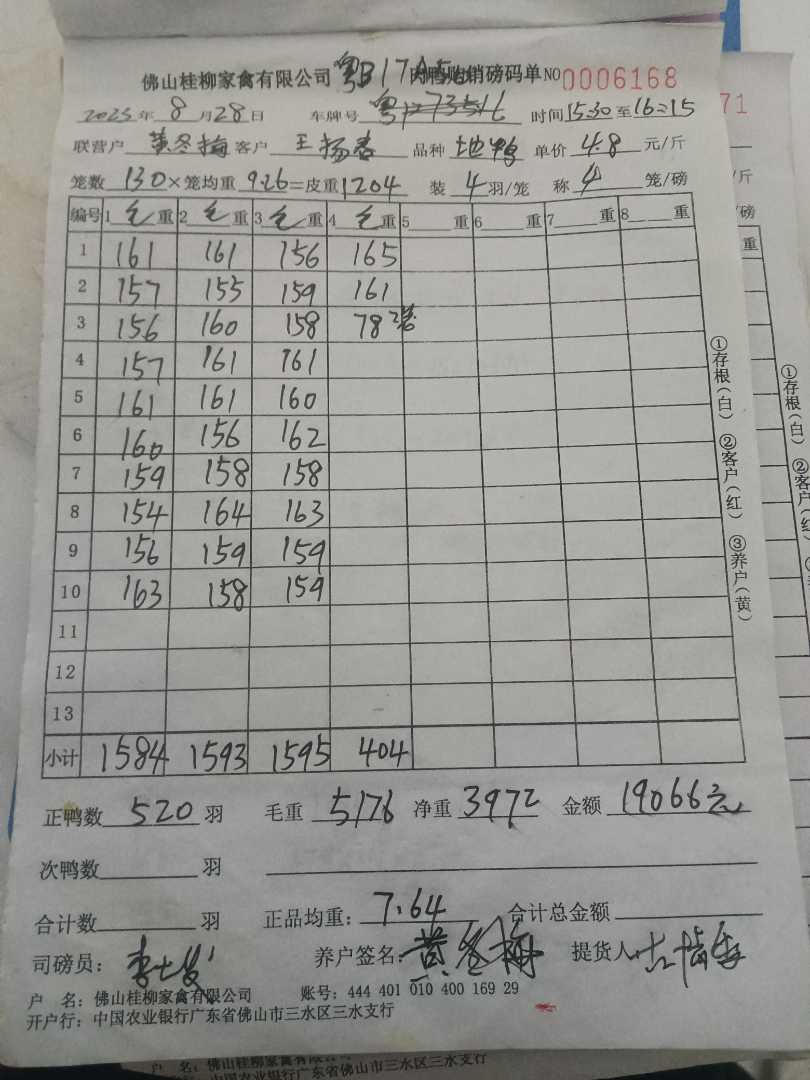 佛山桂柳家禽有限公司 粤B17A 肉鸭购销磅码单 NO 0006168
2025年8月28日 车牌号 粤 时间 15:30 至 16:15
联营户 黄冬梅 客户 王扬春 品种 地鸭 单价 4.8 元/斤
笼数 130 × 笼均重 9.26 = 皮重 1204 装 4 羽/笼 称 4 笼/磅
编号 1 毛 重 2 毛 重 3 毛 重 4 毛 重 5 重 6 重 7 重 8 重
1 161 161 156 165
2 157 155 159 161
3 156 160 158 78 2笼
4 157 161 161
5 161 161 160
6 160 156 162
7 159 158 158
8 154 164 163
9 156 159 159
10 163 158 159
11
12
13
小计 1584 1593 1595 404
①存根(白) ②客户(红) ③养户(黄)
正鸭数 520 羽 毛重 5176 净重 3972 金额 19066元
次鸭数 羽
合计数 羽 正品均重: 7.64 合计总金额
司磅员: 李 养户签名: 黄冬梅 提货人
户 名: 佛山桂柳家禽有限公司 账号: 444 401 010 400 169 29
开户行: 中国农业银行广东省佛山市三水区三水支行
71
/斤
/磅
重
①存根(白) ②客户(红)
户 名: 佛山桂柳家禽有限公
中国农业银行广东省佛山市三水区三水支行